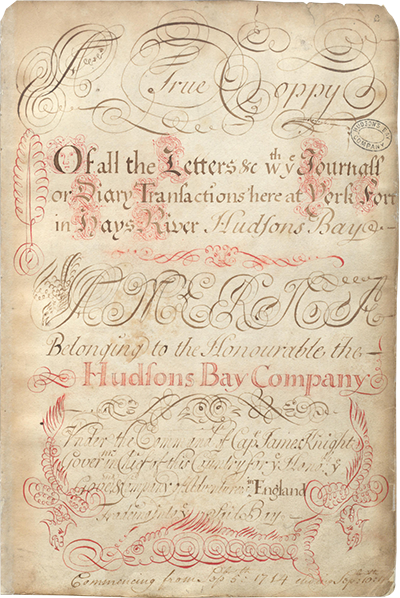 A True Coppy
HUDSONS BAY
COMPANY
Of all the Letters &c wth ye Journall
or Diary Transactions here at York Fort
in Hays River Hudsons Bay
AMERICA
Belonging to the Honourable the
Hudsons Bay Company
Under the Command of Capt James Knight
Govern in Chief of this Country for ye Honble ye
Govr & Company of Adventurers England
Trading into Bay
Commencing from Septr 1714